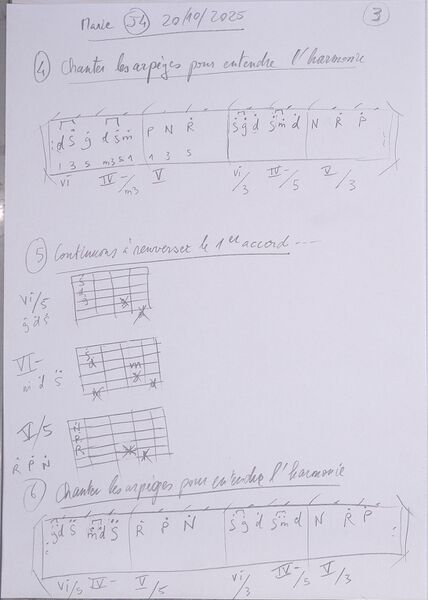 Marie J4 20/10/2025 3
4 Chanter les arpèges pour entendre l'harmonie
d S g d S m P N R S g d S m d N R P
1 3 5 m3 5 1 1 3 5
vi IV-/m3 V vi/3 IV-/5 V/3
5 Continuons à renverser le 1er accord ...
vi/5
g d S
VI-
m d S
V/5
R P N
6 Chanter les arpèges pour entendre l'harmonie
g d S m d S R P N S g d S m d N R P
vi/5 IV- V/5 vi/3 IV-/5 V/3